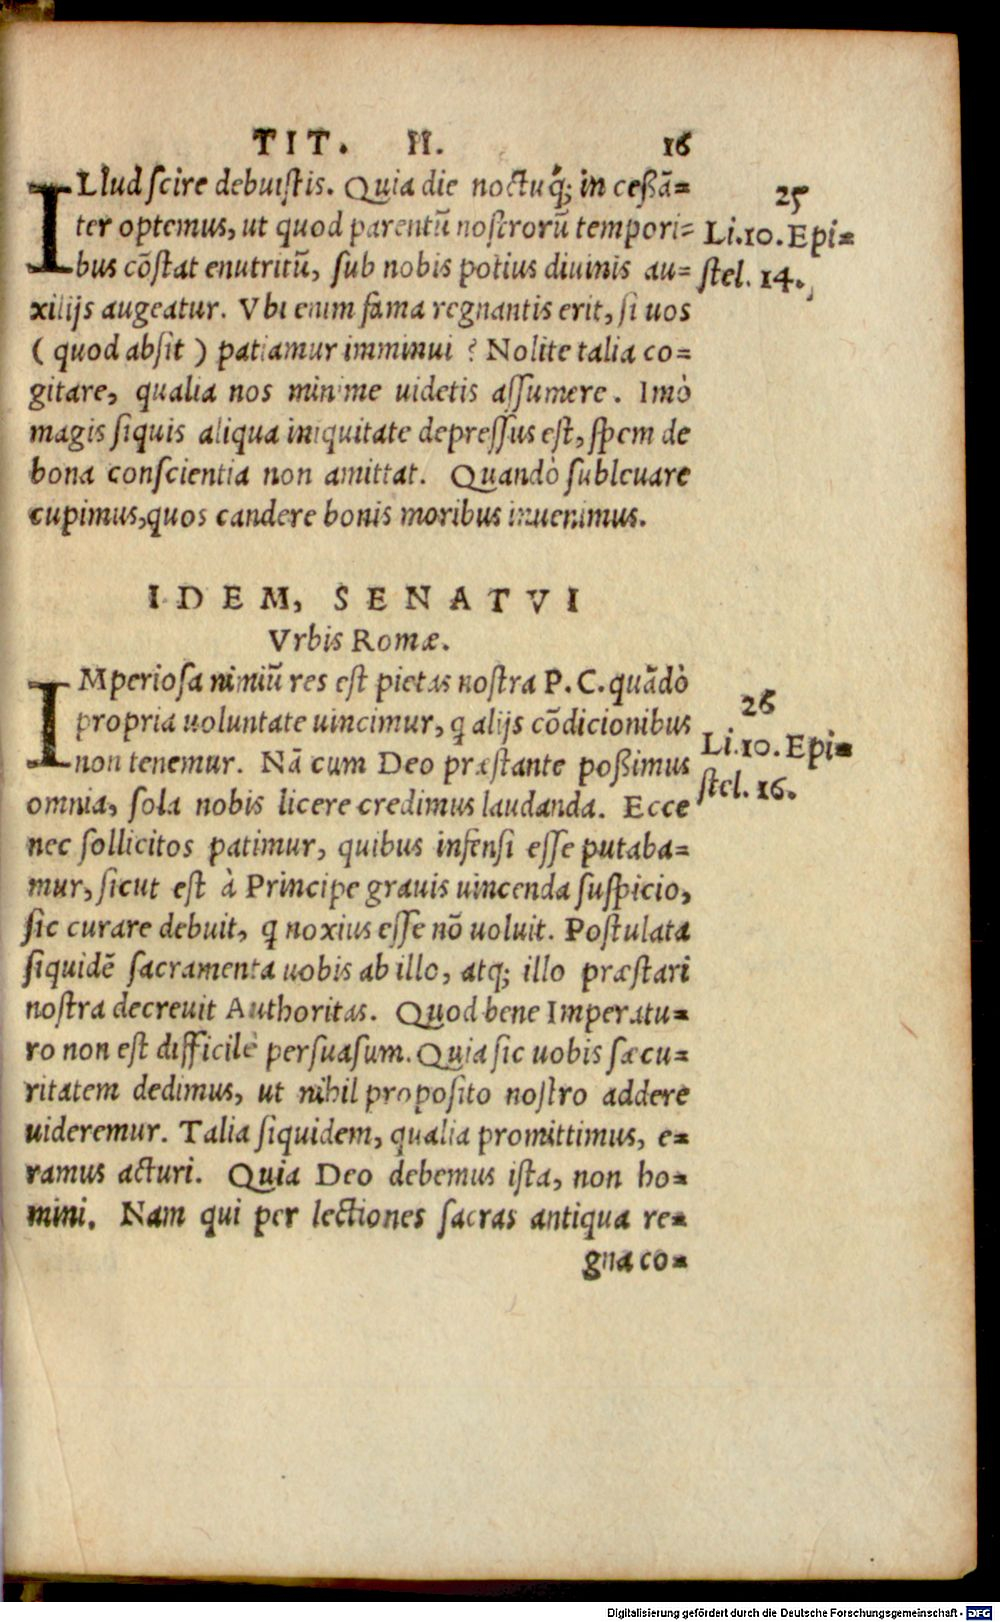 TIT. II. 16
ILlud scire debuistis. Quia die noctuq́; in ceßā=
ter optemus, ut quod parentū nostrorū tempori=
bus cōstat enutritū, sub nobis potius diuinis au=
xilijs augeatur. Vbi enim fama regnantis erit, si uos
( quod absit ) patiamur imminui ? Nolite talia co=
gitare, qualia nos minime uidetis assumere. Imò
magis siquis aliqua iniquitate depressus est, spem de
bona conscientia non amittat. Quandò subleuare
cupimus, quos candere bonis moribus inuenimus.
25
Li.10.Epi=
stel. 14.
IDEM, SENATVI
Vrbis Romæ.
IMperiosa nimiū res est pietas nostra P. C. quādò
propria uoluntate uincimur, q alijs cōdicionibus
non tenemur. Nā cum Deo præstante poßimus
omnia, sola nobis licere credimus laudanda. Ecce
nec sollicitos patimur, quibus infensi esse putaba=
mur, sicut est à Principe grauis uincenda suspicio,
sic curare debuit, q noxius esse nō uoluit. Postulata
siquidē sacramenta uobis ab illo, atq; illo præstari
nostra decreuit Authoritas. Quod bene Imperatu=
ro non est difficilè persuasum. Quia sic uobis sæcu=
ritatem dedimus, ut nihil proposito nostro addere
uideremur. Talia siquidem, qualia promittimus, e=
ramus acturi. Quia Deo debemus ista, non ho=
mini. Nam qui per lectiones sacras antiqua re=
gna co=
26
Li.10.Epi=
stel. 16.
Digitalisierung gefördert durch die Deutsche Forschungsgemeinschaft - DFG